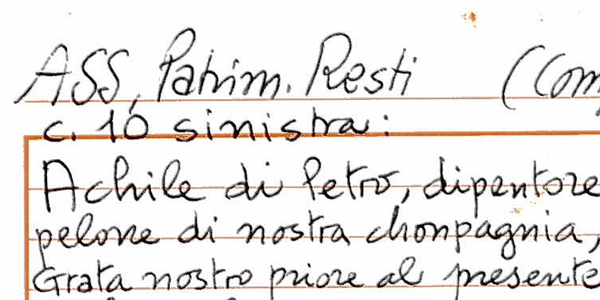 ASS, Patrim. Resti (Com
c. 10 sinistra:
Achile di Petro, dipentore
pelone di nostra chonpagnia,
Grata nostro priore al presente